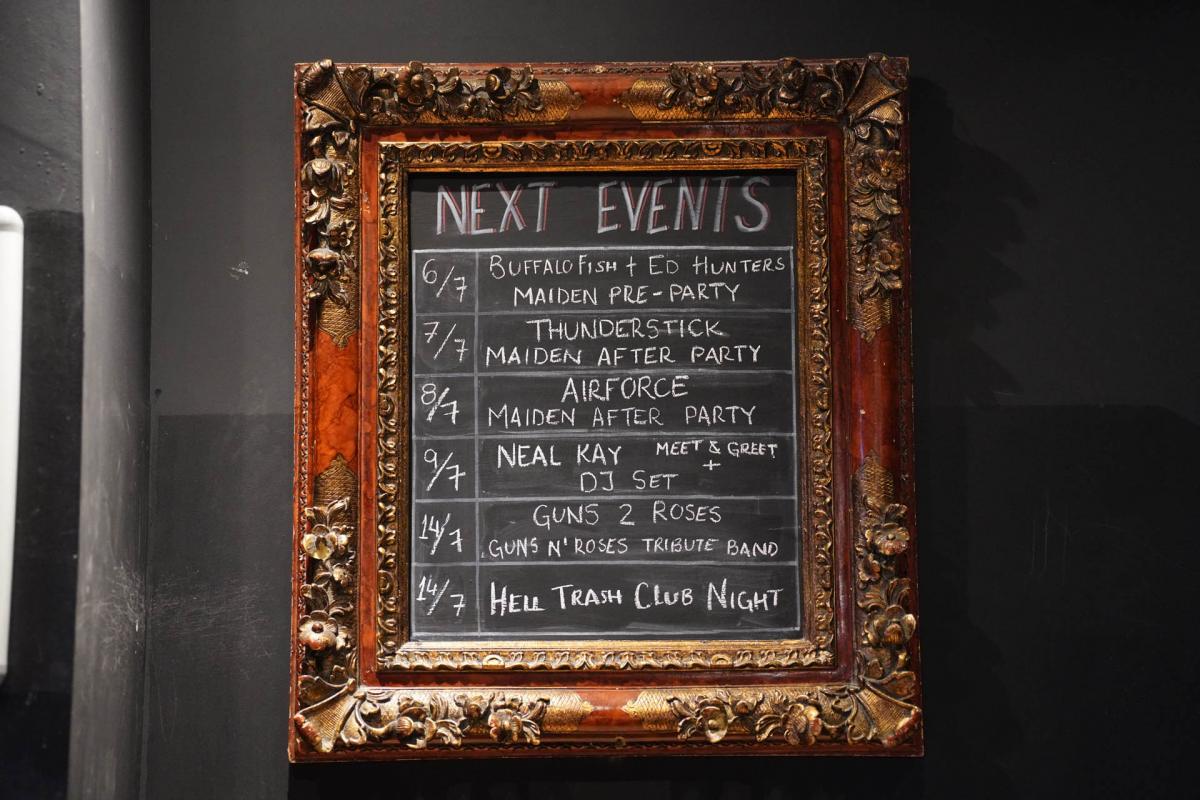 NEXT EVENTS
6/7 BUFFALO FISH + ED HUNTERS
MAIDEN PRE-PARTY
7/7 THUNDERSTICK
MAIDEN AFTER PARTY
8/7 AIRFORCE
MAIDEN AFTER PARTY
9/7 NEAL KAY MEET & GREET
+
DJ SET
14/7 GUNS 2 ROSES
GUNS N' ROSES TRIBUTE BAND
14/7 HELL TRASH CLUB NIGHT